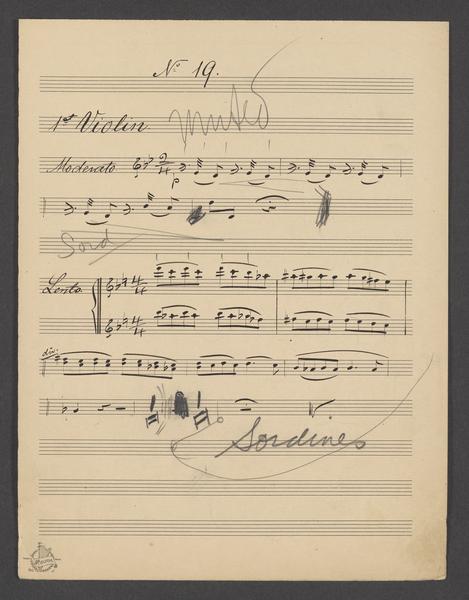 No 19.
1st Violin
muted
Moderato 2/4
p
Sord
Lento. 4/4
4/4
div.
Sordines